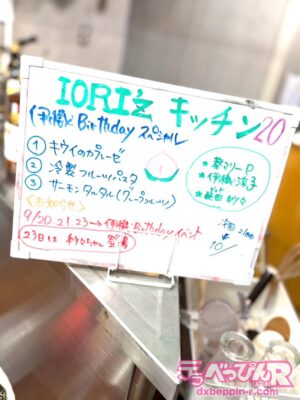 IORI'z キッチン20
伊織's Birthday スペシャル
① キウイのカプレーゼ
② 冷製フルーツパスタ
③ サーモンタルタル(グレープフルーツ)
★葵マリーP
★伊織涼子
★
〈お知らせ〉
9/20.21.23→伊織 Birthdayイベント
23日は ちゃん登場
次回
10/
デラべっぴんR
dxbeppin-r.com